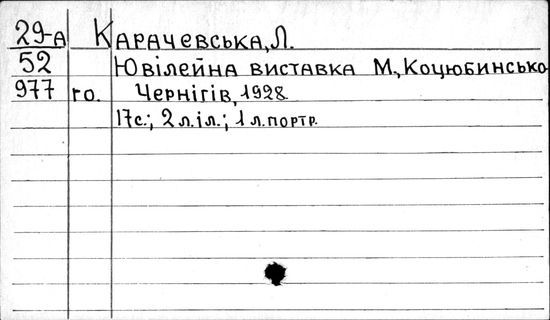 29-А Карачевська, Л.
52 Ювілейна виставка М. Коцюбинсько-
977 го. Чернігів, 1928.
17с.; 2 л.іл.; 1 л.портр.